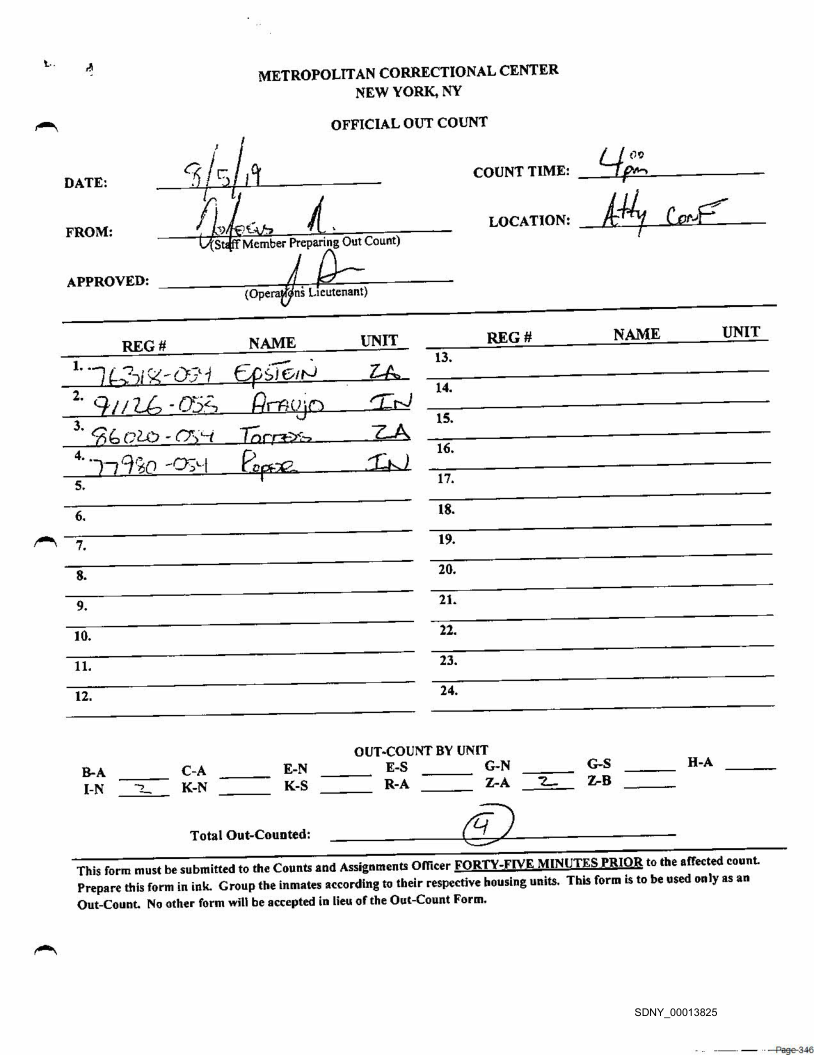 METROPOLITAN CORRECTIONAL CENTER
NEW YORK, NY
OFFICIAL OUT COUNT
DATE: 8/5/19 COUNT TIME: 4:00 pm
FROM: LOCATION: Atty Conf
(Staff Member Preparing Out Count)
APPROVED:
(Operations Lieutenant)
REG # NAME UNIT REG # NAME UNIT
1. 76318-054 EPSTEIN ZA 13.
2. 91126-053 Araujo IN 14.
3. 86020-054 Torres ZA 15.
4. 77980-054 IN 16.
5. 17.
6. 18.
7. 19.
8. 20.
9. 21.
10. 22.
11. 23.
12. 24.
OUT-COUNT BY UNIT
B-A C-A E-N E-S G-N G-S H-A
I-N 2 K-N K-S R-A Z-A 2 Z-B
Total Out-Counted: 4
This form must be submitted to the Counts and Assignments Officer FORTY-FIVE MINUTES PRIOR to the affected count.
Prepare this form in ink. Group the inmates according to their respective housing units. This form is to be used only as an
Out-Count. No other form will be accepted in lieu of the Out-Count Form.
SDNY_00013825
Page 346